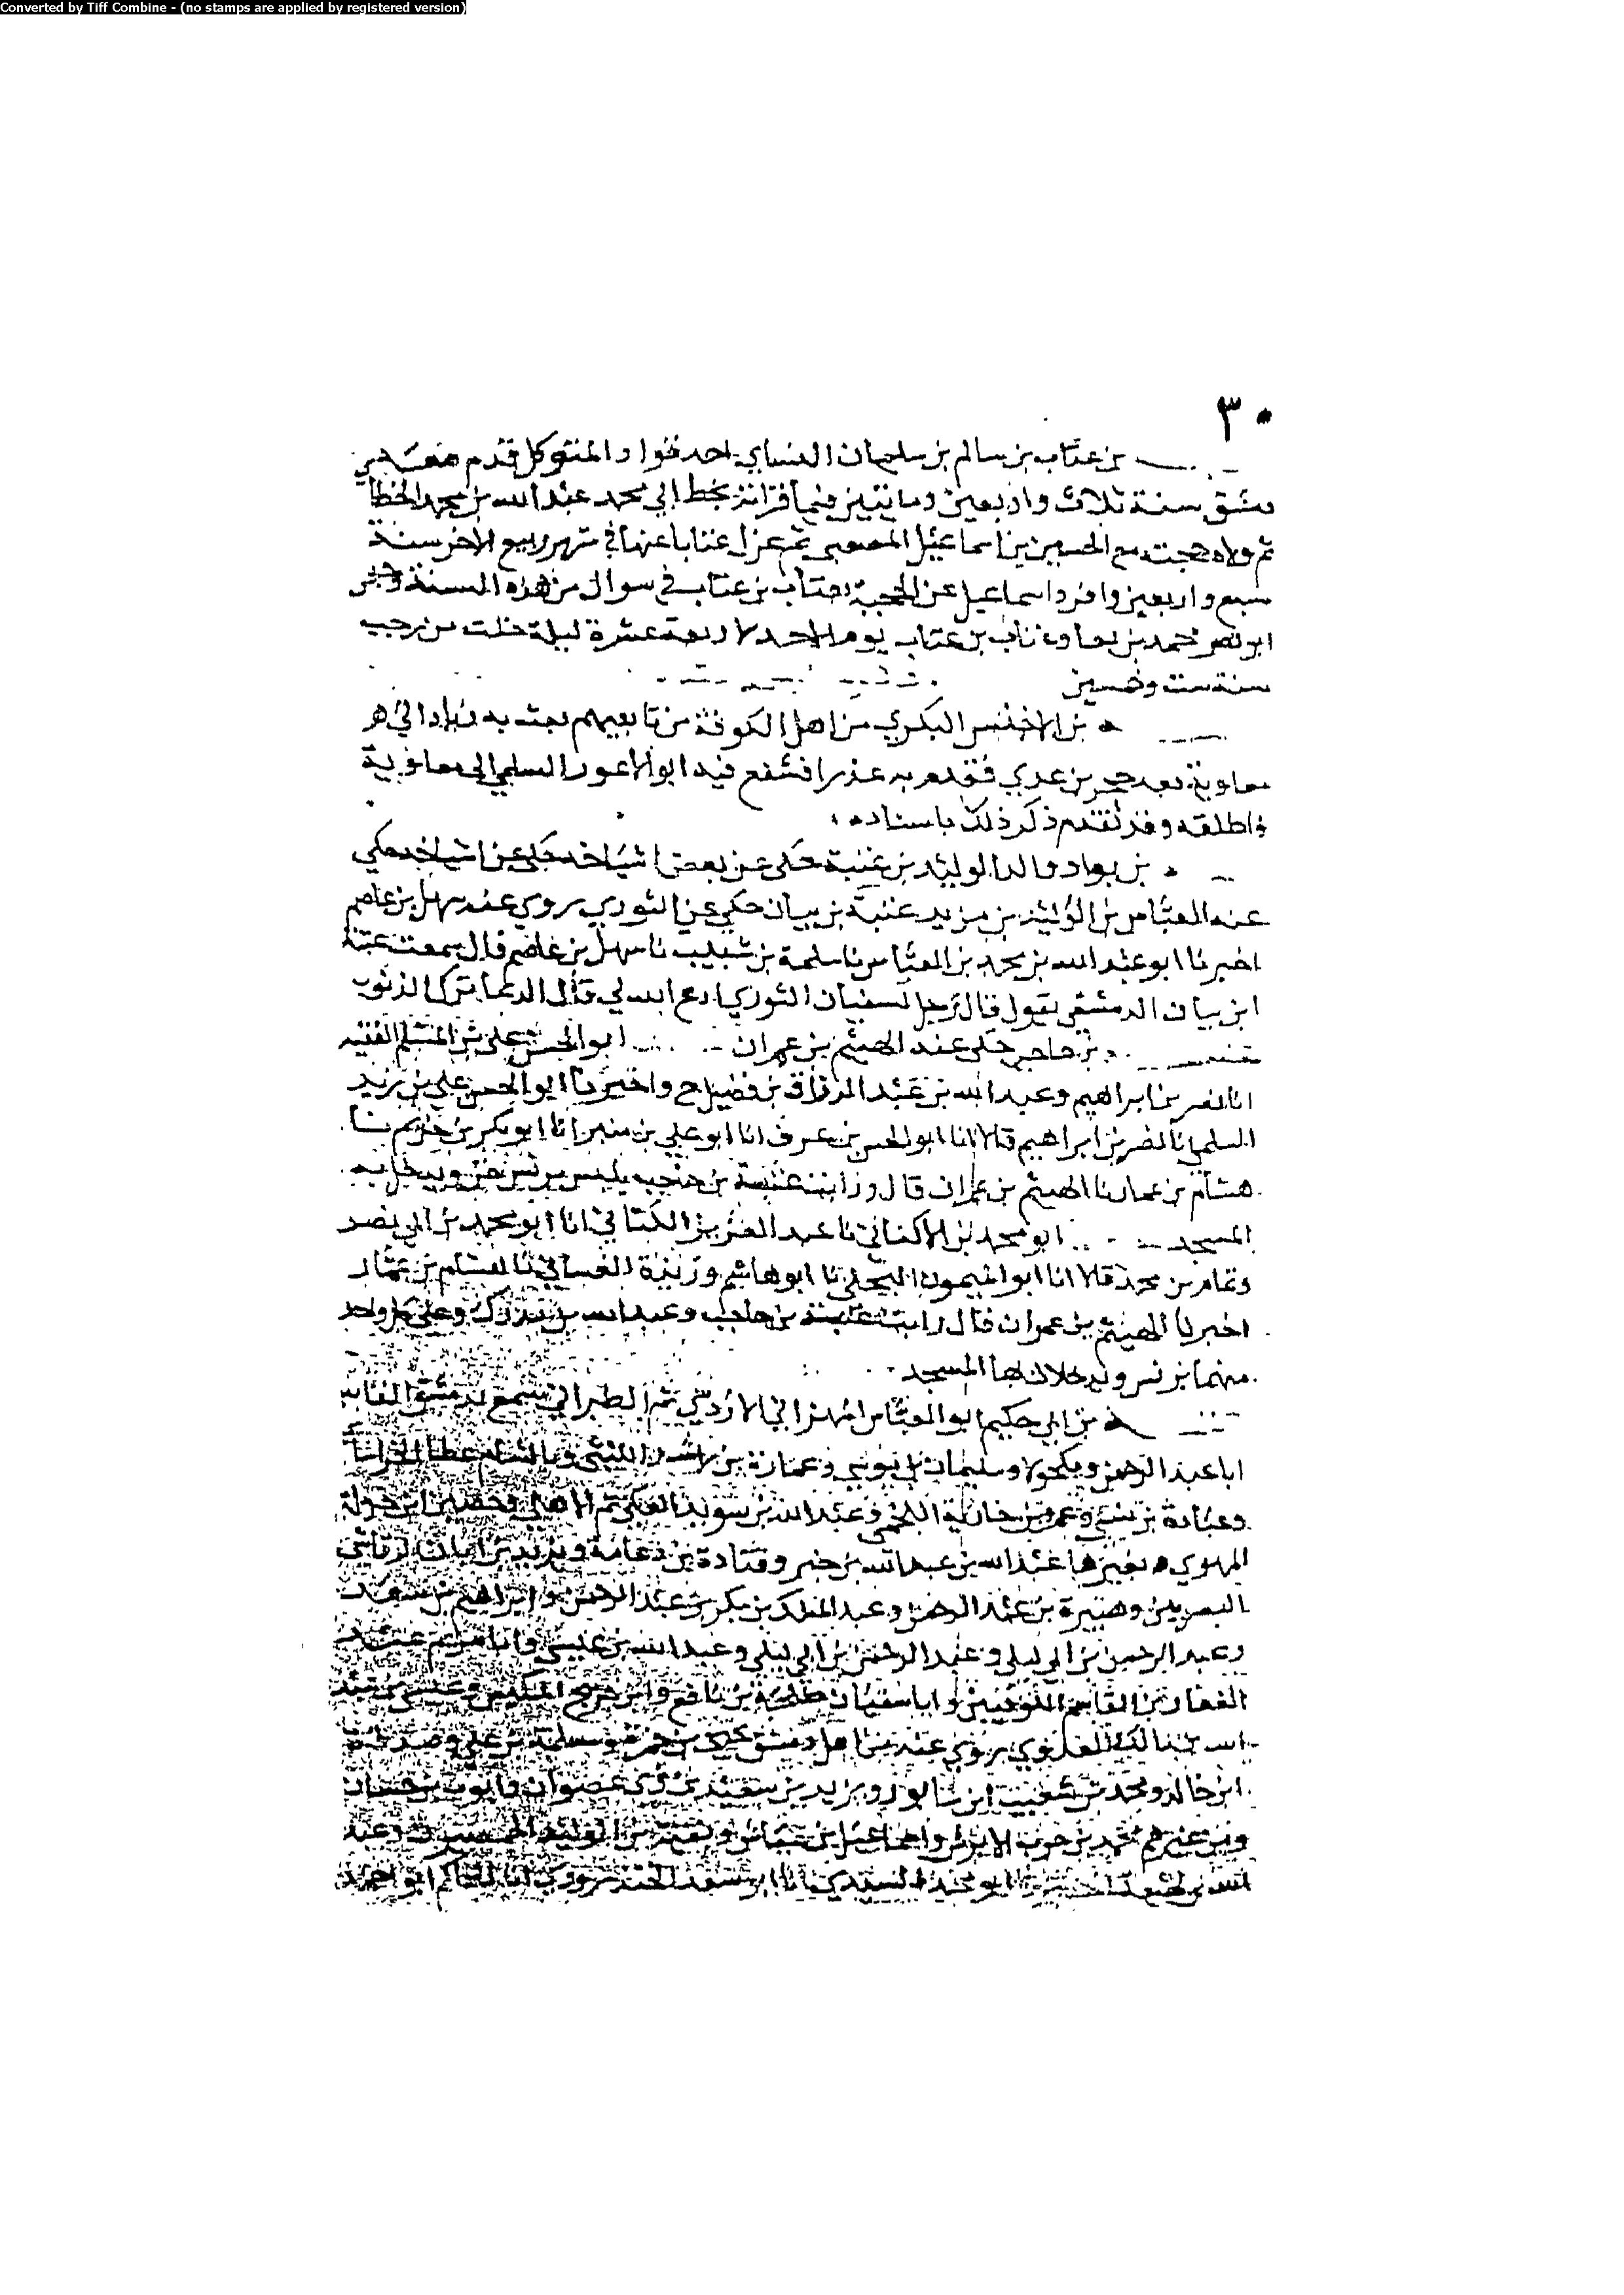 Converted by Tiff Combine - (no stamps are applied by registered version)
٣٠
بن عتاب بن سالم بن سليمان النساي احد قواد المتوكل قدم معه
دمشق سنة ثلاث واربعين ومايتين فيما قرانه بخط ابي محمد عبد الله بن محمد الخطا
ثم ولاه حجبته مع الحسين بن اسماعيل المصعبي ثم عزل عتابا عنها في شهر ربيع الاخر سنة
سبع واربعين وافرد اسماعيل عن الحجبة بعتاب بن عتاب في سوال من هذه السنة
ابو نصر محمد بن عتاب يوم الاحد لاربعة عشرة ليلة خلت من رجب
سنة ست وخمسين
بن الاخنس البكري من اهل الكوفة من تابعيهم بعث به زياد الى
معاوية بعد حجر بن عدي فقدم به عذرا فشفع فيه ابو الاعور السلمي الى معاوية
فاطلقه وقد تقدم ذكر ذلك باسناده
بن والد الوليد بن عتبة حكى عن بعض اشياخه حكى
عنه العباس بن الوليد بن مزيد عتبة بن بيان حكى عن الثوري روى عنه سهل بن عاصم
اخبرنا ابو عبد الله بن محمد بن العباس نا سلمة بن شبيب نا سهل بن عاصم قال سمعت عتبة
ابن بيان الدمشقي يقول قال رجل لسفيان الثوري ادع الله لي قال الدعا ترك الذنوب
بن حاجر حكى عنه الهيثم بن عمران ابو الحسن علي بن المسلم الفقيه
انا نصر بن ابراهيم وعبد الله بن عبد الرزاق بن فضيل ح واخبرنا ابو الحسن علي بن زيد
السلمي انا نصر بن ابراهيم قالا انا ابو الحسن بن عوف انا ابو علي بن منير انا ابو بكر بن خريم نا
هشام بن عمار نا الهيثم بن عمران قال ورايت عتبة بن يلبس برنس خز ويدخل به
المسجد ابو محمد بن الاكفاني نا عبد العزيز الكتاني انا ابو محمد بن ابي نصر
وتمام بن محمد قالا انا ابو الميمون البجلي نا ابو هاشم وريزة الغساني نا هشام بن عمار
اخبرنا الهيثم بن عمران قال رايت عتبة بن حاجب وعبد الله بن وعلى كل واحد
منهما برنس ويدخلان بها المسجد
بن ابي حكيم ابو العباس الهمداني الاردني ثم الطبراني سمع بدمشق القاسم
ابا عبد الرحمن ومكحولا وسليمان بن موسى وعمارة بن راشد الليثي وبالشام عطا الخراسا
وعبادة بن نسي وعمرو بن جارية اللخمي وعبد الله بن سويد العكي ثم وحصين ابن
المهري وبغيرها عبد الله بن عبد الله بن جبر وقتادة بن دعامة ويزيد بن ابان الرقاشي
البصريين وهبيرة بن عبد الرحمن وعبد الملك بن بكر بن عبد الرحمن وابراهيم بن سعد
وعبد الرحمن بن ابي ليلى وعبد الرحمن بن ابي ليلى وعبد الله بن عيسى وابا مريم عبد
الغفار بن القاسم الكوفيين وابا سفيان طلحة بن نافع وابن جريج المكيين وعيسى بن عبد
روى عنه من اهل دمشق يحيى بن حمزة ومسلمة بن علي وصدقة
ابن خالد ومحمد بن شعيب ابن شابور ويزيد بن سعيد بن ذي عصوان وايوب بن حسان
ومن غيرهم محمد بن حرب الابرش واسماعيل بن عياش وبقية بن الوليد الحمصيون وعبد
الله بن لهيعة اخبرنا ابو محمد السيدي انا ابو سعد الجنزرودي انا الحاكم ابو احمد